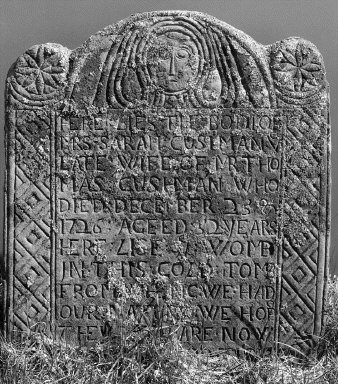 HERE LIES THE BODY OF
ERS SARAH CUSHMAN
LATE WIFE OF MR THO
MAS CUSHMAN WHO
DIED DECEMBER 25
1726 AGEED 32 YEARS
HERE LIES WOMB
IN THIS COLD TOMB
FROM WE HAD
OUR WE HOP
THEY ARE NOW